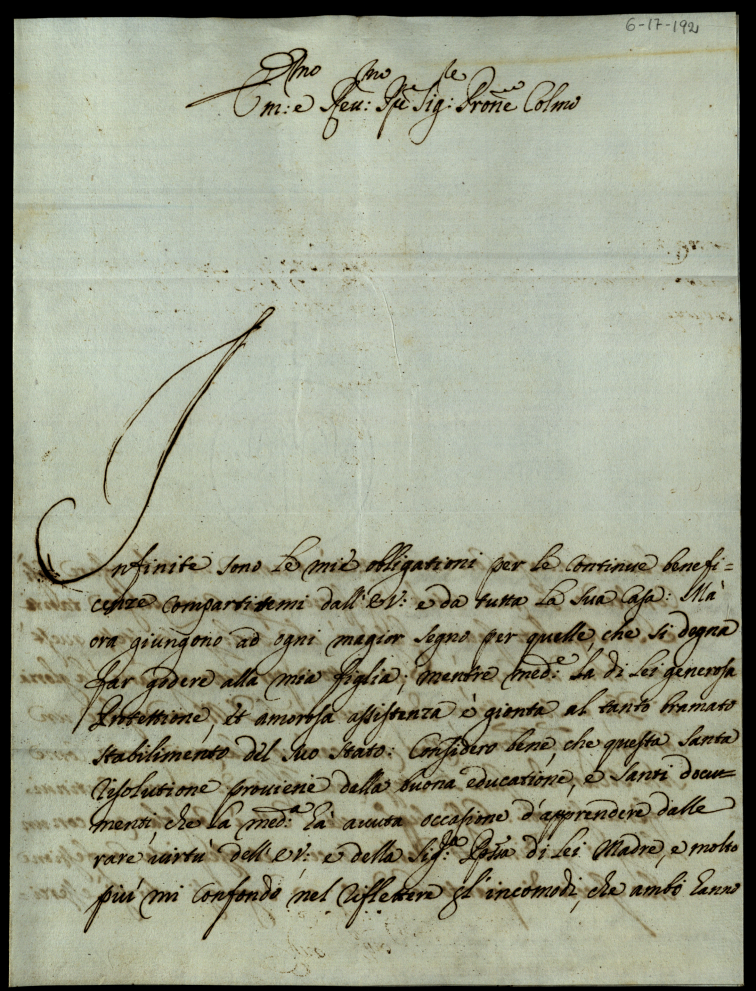 6-17-192
Em:mo e Rev:mo Sig:re Prone Colmo
Infinite sono le mie obligationi per le continue benefi=
cenze compartitemi dall' EV: e da tutta la Sua Casa: Mà
ora giungono ad ogni magior segno per quelle, che si degna
far godere alla mia figlia; mentre med:e la di lei generosa
Protettione, et amorosa assistenza è gionta al tanto bramato
stabilimento del suo stato: Considero bene, che questa santa
risolutione proviene dalla buona educatione, e santi docu=
menti, che la med:a hà avuta occasione d'apprendere dalle
rare virtù dell' EV: e della Sig:ra Ppssa di lei Madre, e molto
più mi confondo nel riflettere gl'incomodi, che ambo hanno